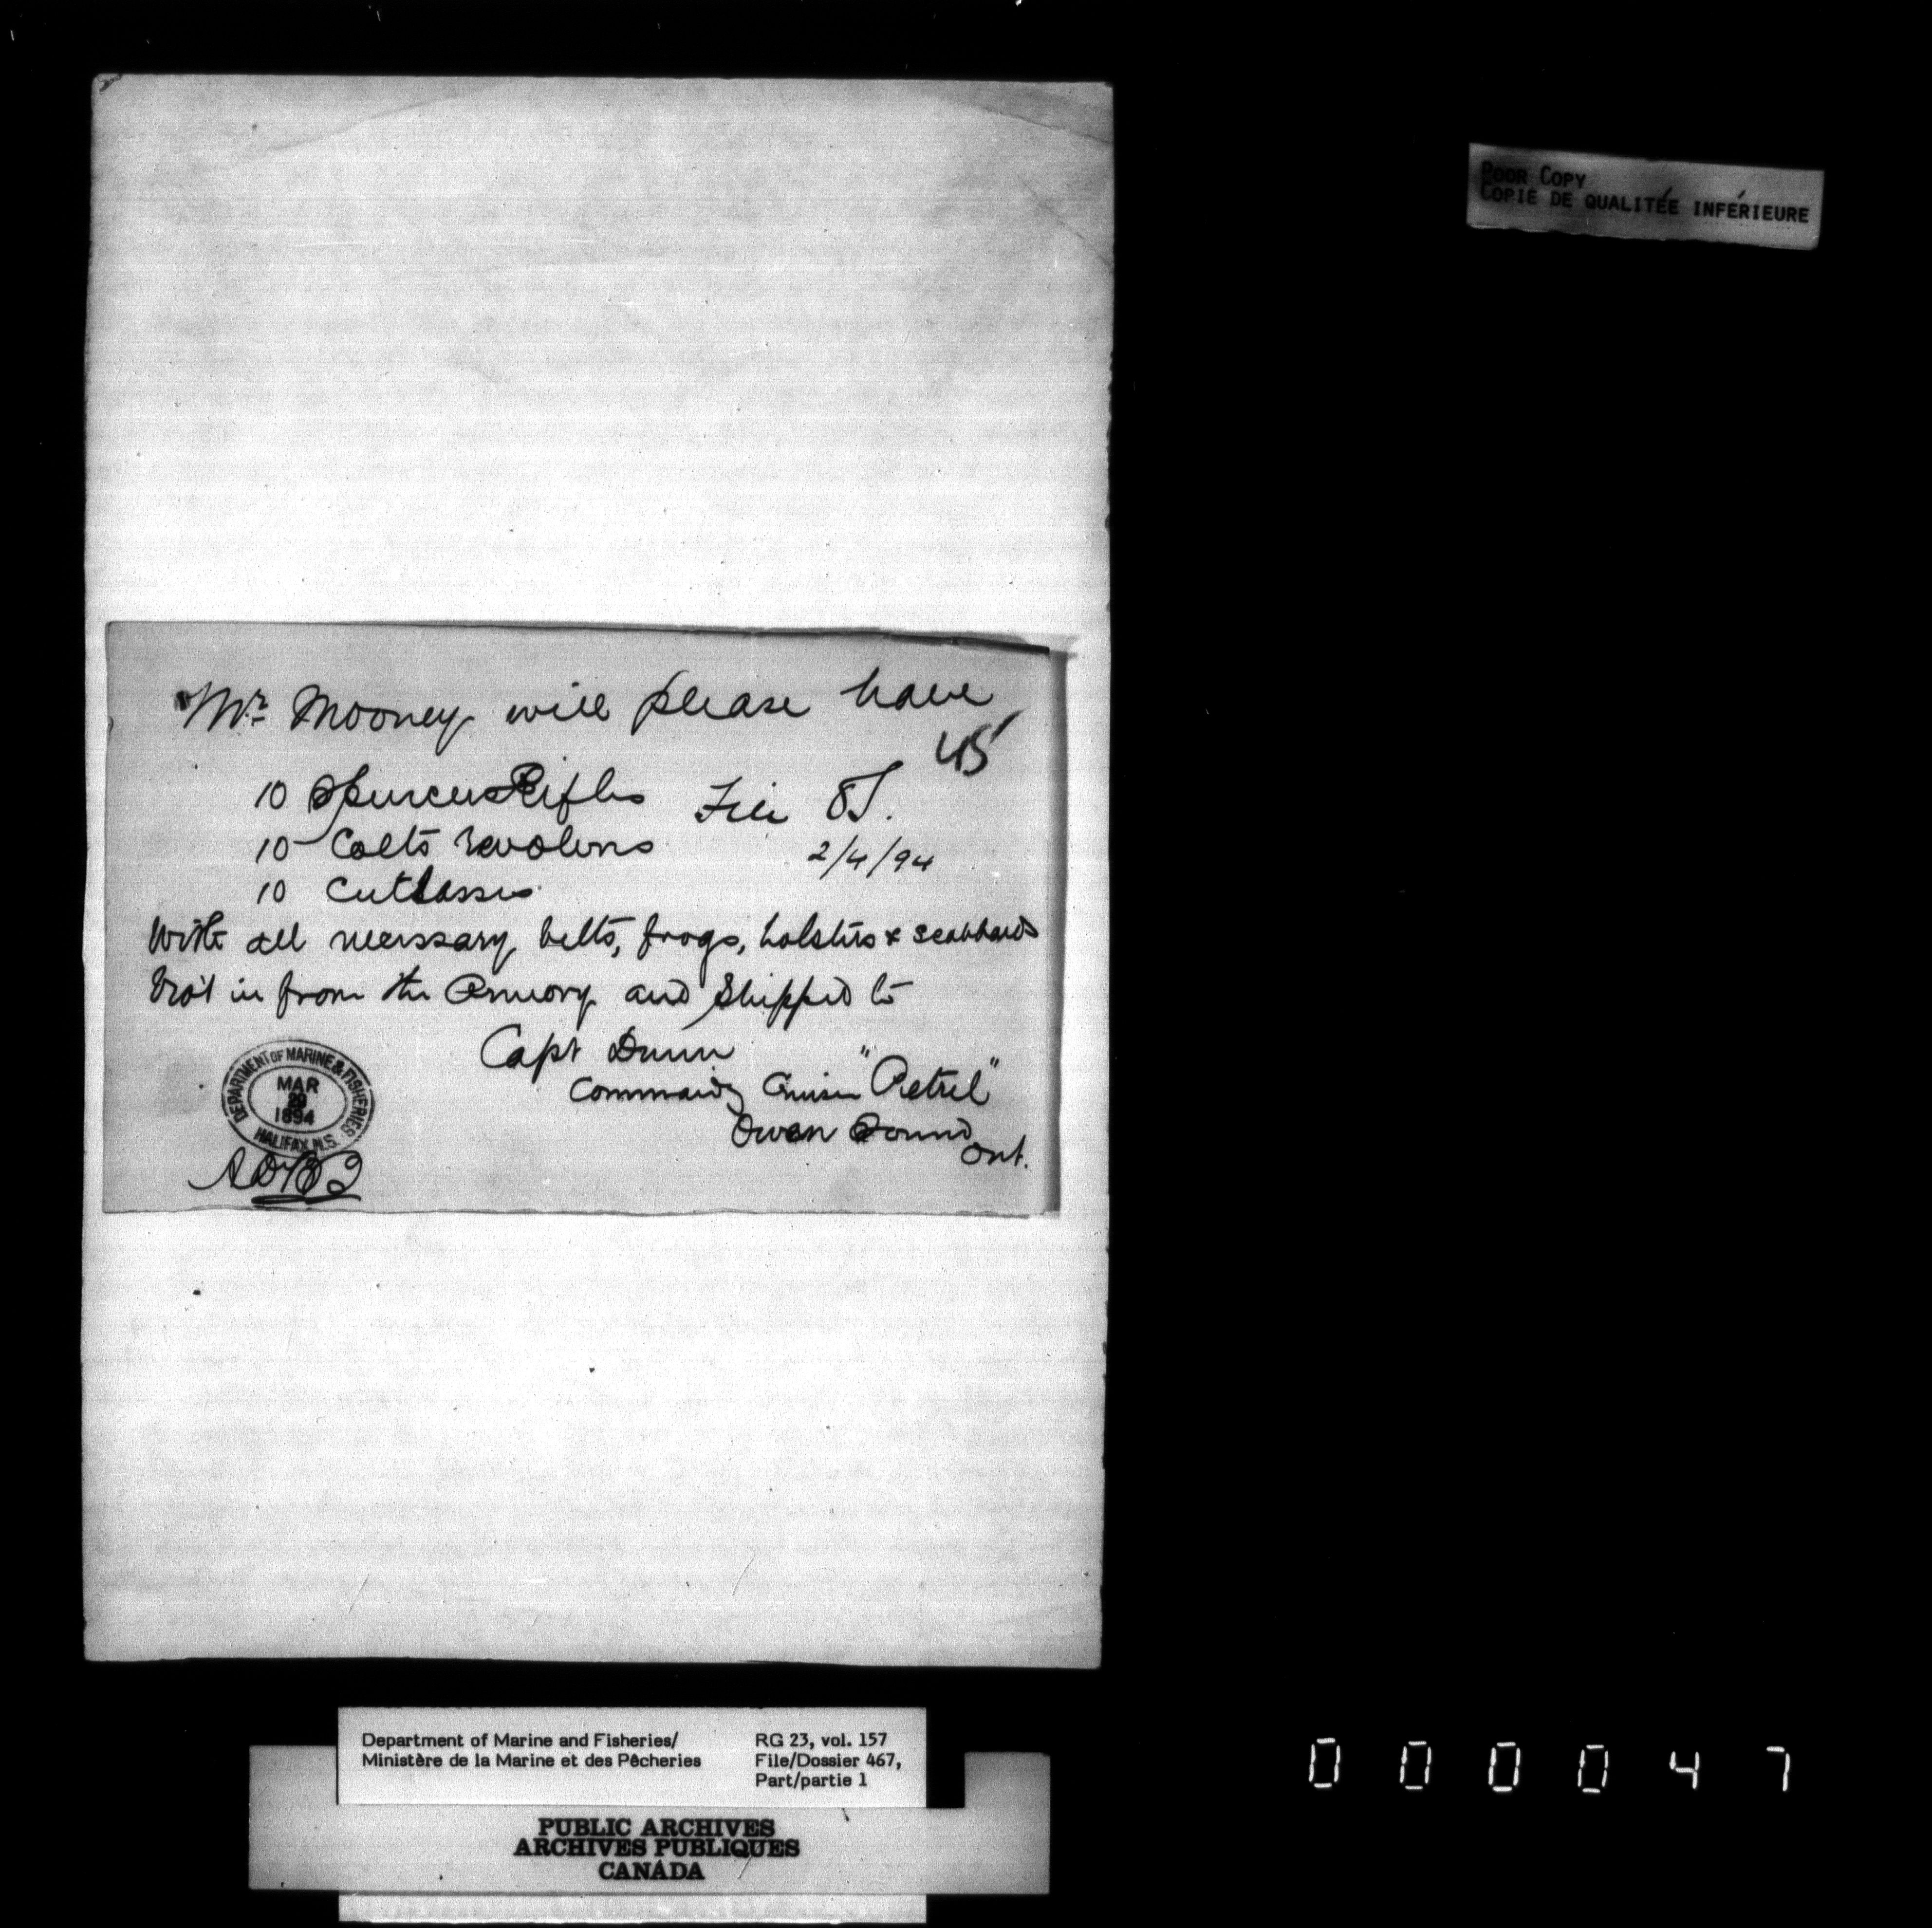 POOR COPY
COPIE DE QUALITÉE INFÉRIEURE
Mr. Mooney will please have
45
10 Spencer Rifles
File
2/4/94
10 Colts revolvers
10 Cutlasses
With all necessary belts, frogs, holsters & scabbards
bro't in from the Armory and shipped to
Capt Dunn
Commandg Cruiser "Petrel"
Owen Sound
Ont.
DEPARTMENT OF MARINE & FISHERIES
MAR
29
1894
HALIFAX N.S.
Department of Marine and Fisheries/ RG 23, vol. 157
Ministère de la Marine et des Pêcheries File/Dossier 467,
Part/partie 1
PUBLIC ARCHIVES
ARCHIVES PUBLIQUES
CANADA
000047